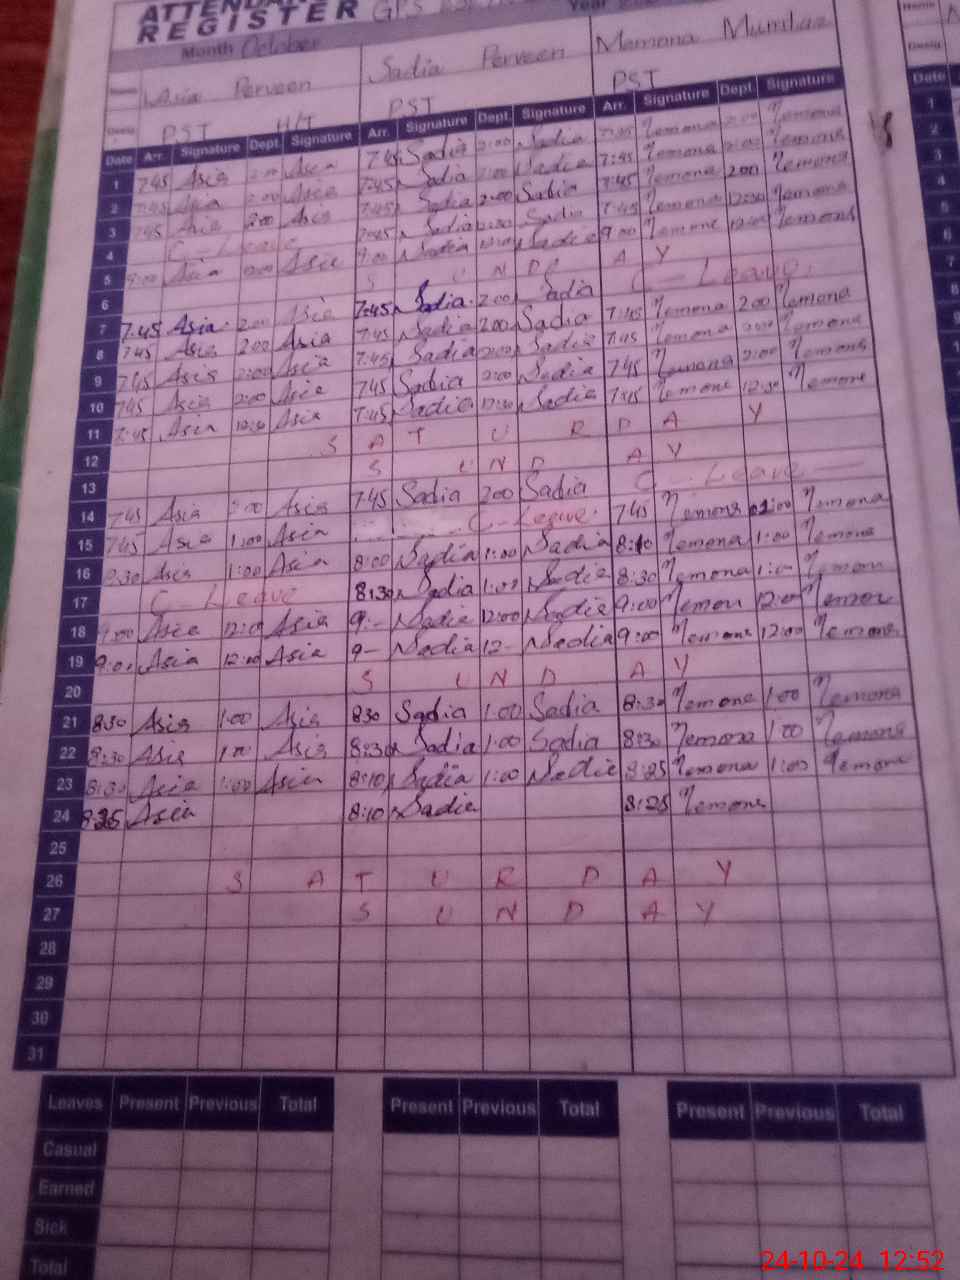 ATTENDAN
REGISTER GPS
Year
Month October
Name Asia Perveen Sadia Perveen Memona Mumtaz
Desig PST H/T PST PST
Date Arr. Signature Dept. Signature Arr. Signature Dept. Signature Arr. Signature Dept. Signature
1 7:45 Asia 2:00 Asia 7:45 Sadia 2:00 Sadia 7:45 Memona 2:00 Memona
2 7:45 Asia 2:00 Asia 7:45 Sadia 2:00 Sadia 7:45 Memona 2:00 Memona
3 7:45 Asia 2:00 Asia 7:45 Sadia 2:00 Sadia 7:45 Memona 2:00 Memona
4 C - Leave 7:45 Sadia 12:30 Sadia 7:45 Memona 12:30 Memona
5 9:00 Asia Asia 9:00 Sadia Sadia 9:00 Memona 12:00 Memona
6 S U N D A Y
7 7:45 Asia 2:00 Asia 7:45 Sadia 2:00 Sadia C - Leave
8 7:45 Asia 2:00 Asia 7:45 Sadia 2:00 Sadia 7:45 Memona 2:00 Memona
9 7:45 Asia 2:00 Asia 7:45 Sadia 2:00 Sadia 7:45 Memona 2:00 Memona
10 7:45 Asia 2:00 Asia 7:45 Sadia 2:00 Sadia 7:45 Memona 2:00 Memona
11 7:45 Asia 12:30 Asia 7:45 Sadia 12:30 Sadia 7:45 Memona 12:30 Memona
12 S A T U R D A Y
13 S U N D A Y
14 7:45 Asia 2:00 Asia 7:45 Sadia 2:00 Sadia C - Leave
15 7:45 Asia 1:00 Asia C - Leave 7:45 Memona 1:00 Memona
16 8:30 Asia 1:00 Asia 8:00 Sadia 1:00 Sadia 8:10 Memona 1:00 Memona
17 C - Leave 8:30 Sadia 1:00 Sadia 8:30 Memona 1:00 Memona
18 9:00 Asia 12:00 Asia 9:- Sadia 12:00 Sadia 9:00 Memona 12:00 Memona
19 9:00 Asia 12:00 Asia 9- Sadia 12- Sadia 9:00 Memona 12:00 Memona
20 S U N D A Y
21 8:30 Asia 1:00 Asia 8:30 Sadia 1:00 Sadia 8:30 Memona 1:00 Memona
22 8:30 Asia 1:00 Asia 8:30 Sadia 1:00 Sadia 8:30 Memona 1:00 Memona
23 8:30 Asia 1:00 Asia 8:10 Sadia 1:00 Sadia 8:25 Memona 1:00 Memona
24 8:25 Asia 8:10 Sadia 8:25 Memona
25
26 S A T U R D A Y
27 S U N D A Y
28
29
30
31
Leaves Present Previous Total Present Previous Total Present Previous Total
Casual
Earned
Sick
Total
Name
Desig
Date
1
2
3
4
5
6
7
8
24-10-24 12:52